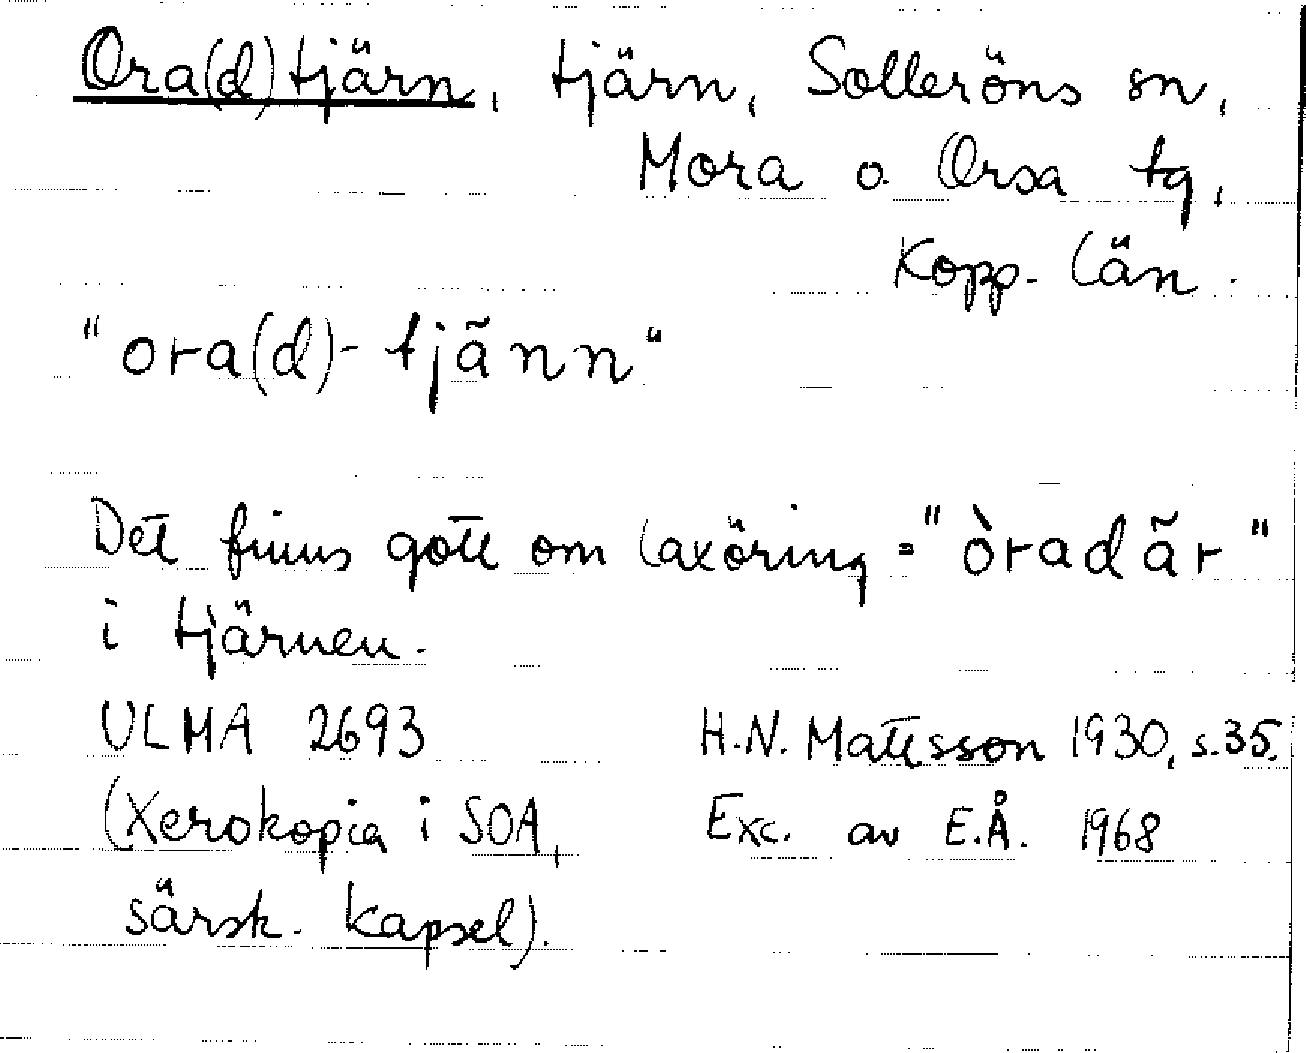 Ora(d)tjärn, tjärn, Solleröns sn,
Mora o. Orsa tg,
Kopp. län.
"ora(d)-tjãnn"
Det finns gott om laxöring = "òradãr"
i tjärnen.
ULMA 2693 H.N. Mattsson 1930, s.35.
(Xerokopia i SOA, Exc. av E.Å. 1968
särsk. kapsel).